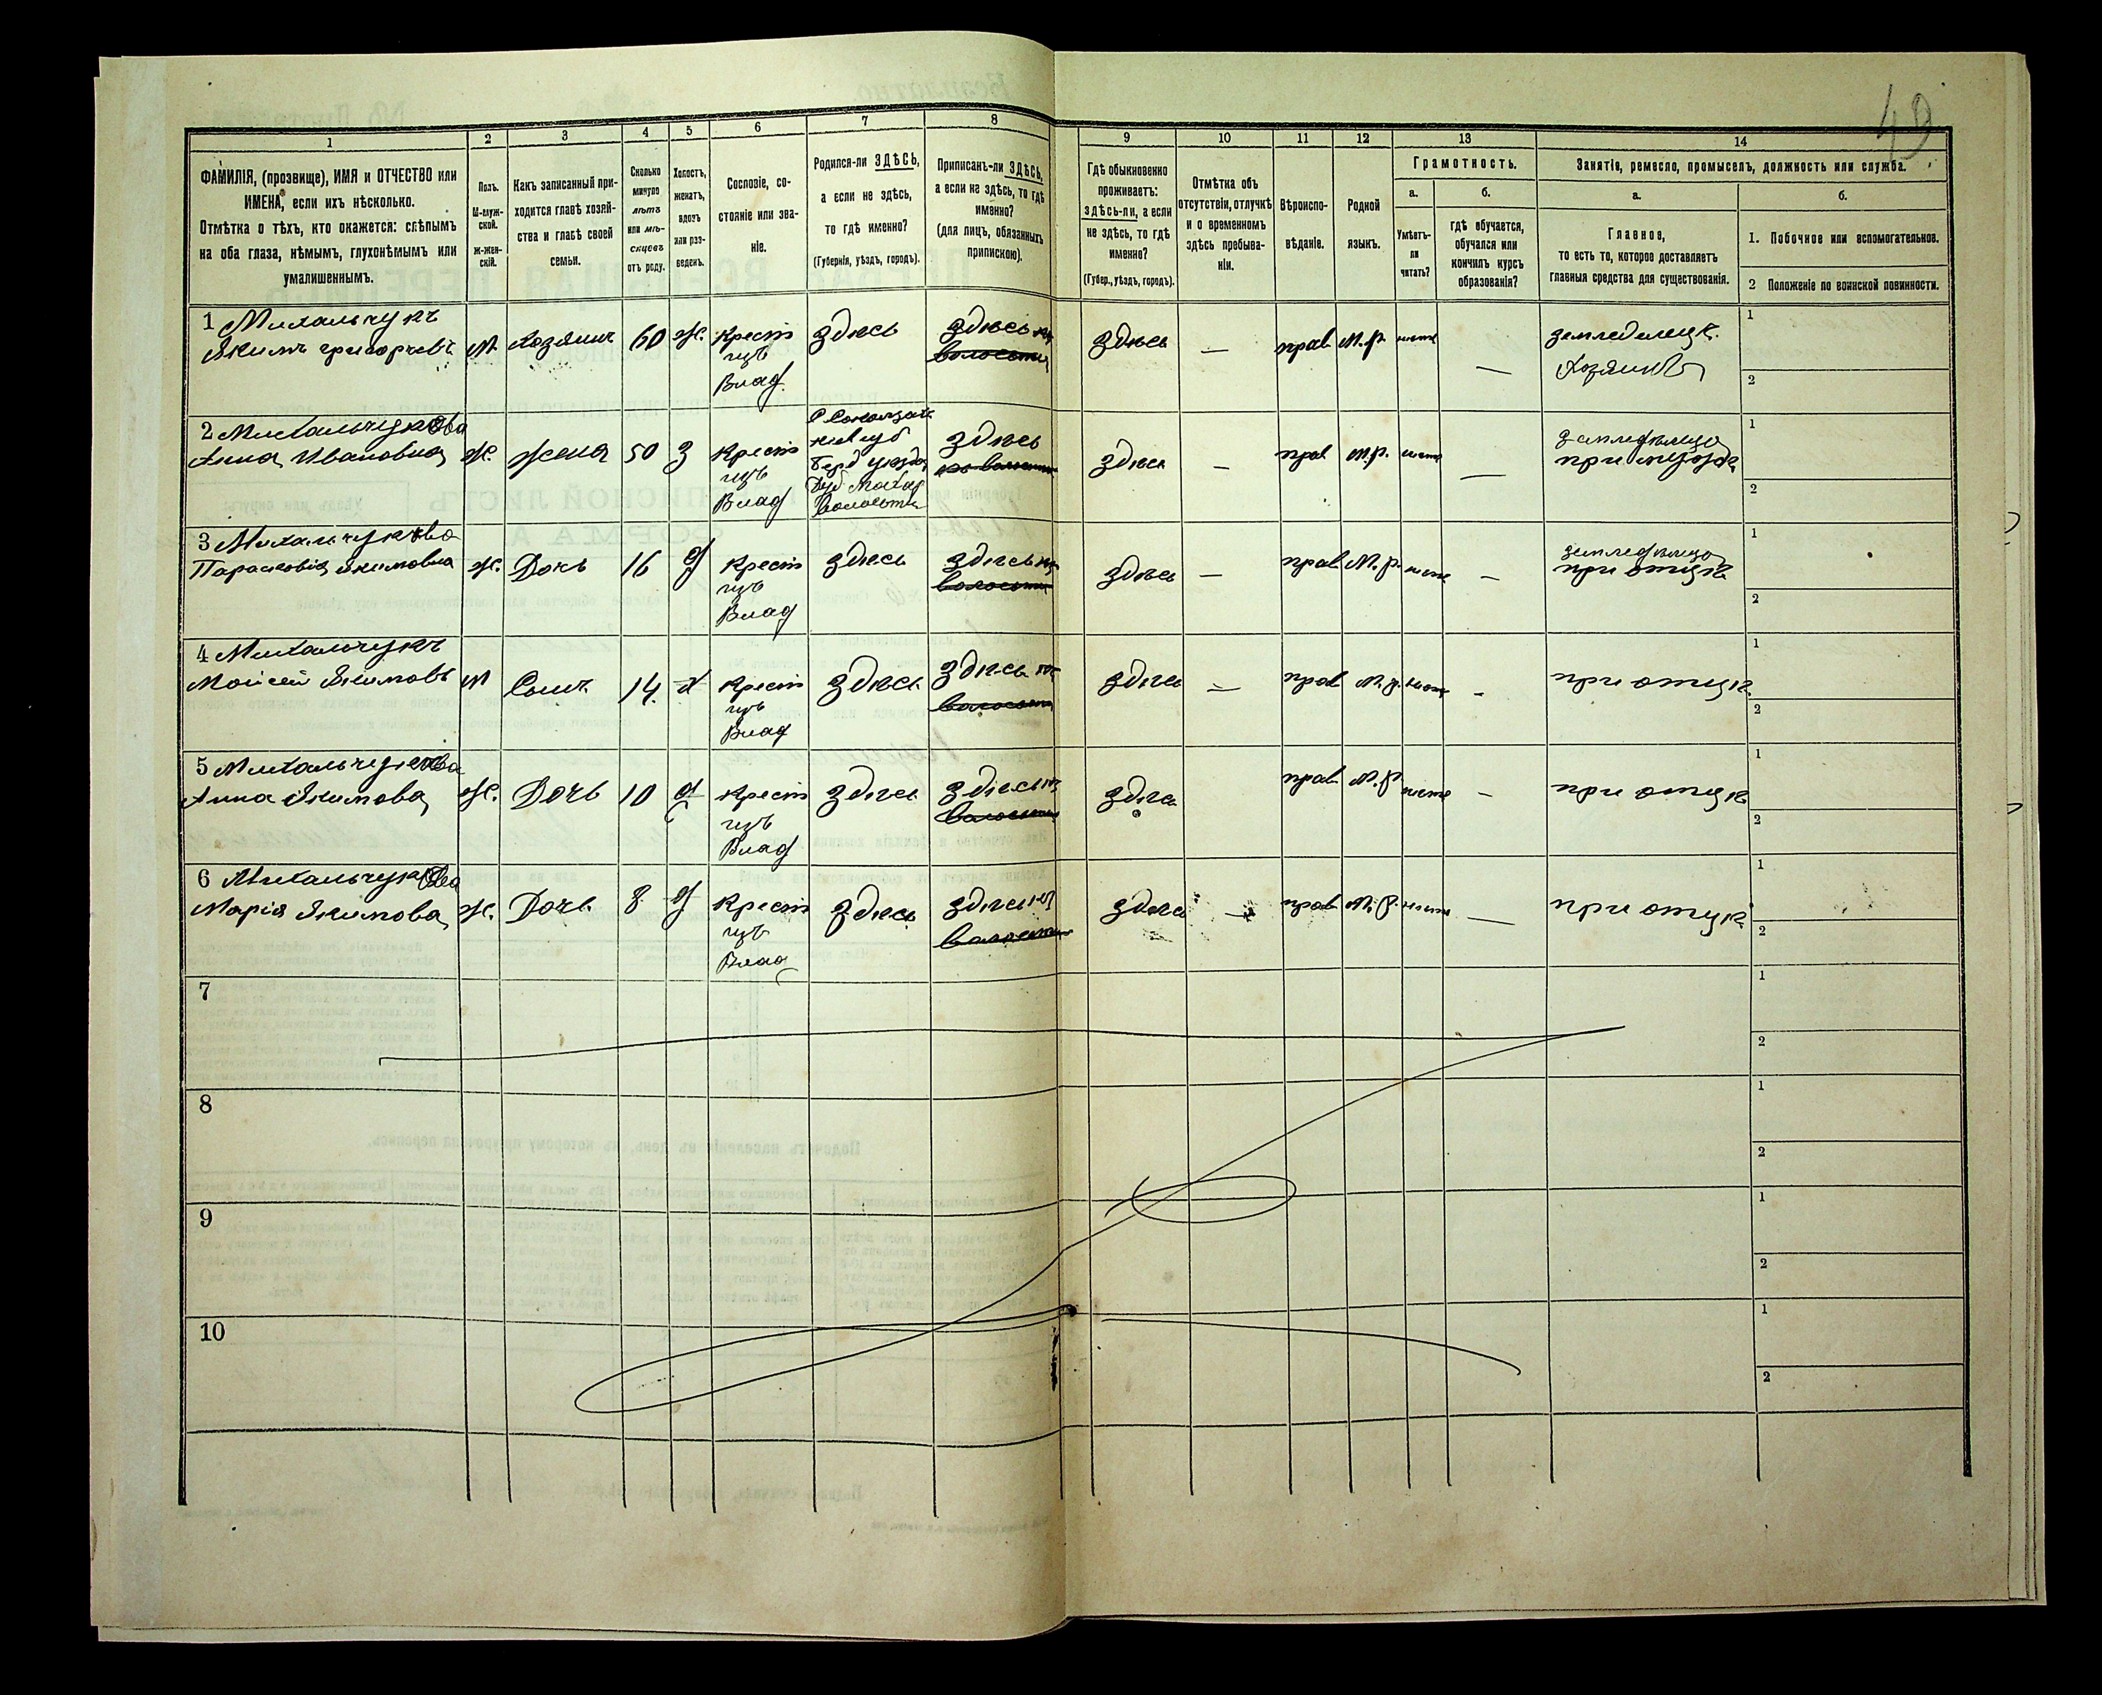 49
1 2 3 4 5 6 7 8 9 10 11 12 13 14
ФАМИЛІЯ, (прозвище), ИМЯ и ОТЧЕСТВО или
ИМЕНА, если ихъ нѣсколько.
Отмѣтка о тѣхъ, кто окажется: слѣпымъ
на оба глаза, нѣмымъ, глухонѣмымъ или
умалишеннымъ.
Полъ.
М-муж-
ской.
ж-жен-
скій.
Какъ записанный при-
ходится главѣ хозяй-
ства и главѣ своей
семьи.
Сколько
минуло
лѣтъ
или мѣ-
сяцевъ
отъ роду.
Холостъ,
женатъ,
вдовъ
или раз-
веденъ.
Сословіе, со-
стояніе или зва-
ніе.
Родился-ли ЗДѢСЬ,
а если не здѣсь,
то гдѣ именно?
(Губернія, уѣздъ, городъ).
Приписанъ-ли ЗДѢСЬ,
а если не здѣсь, то гдѣ
именно?
(для лицъ, обязанныхъ
припискою).
Гдѣ обыкновенно
проживаетъ:
здѣсь-ли, а если
не здѣсь, то гдѣ
именно?
(Губер., уѣздъ, городъ).
Отмѣтка объ
отсутствіи, отлучкѣ
и о временномъ
здѣсь пребыва-
ніи.
Вѣроиспо-
вѣданіе.
Родной
языкъ.
Грамотность.
а.
Умѣетъ-
ли
читать?
б.
гдѣ обучается,
обучался или
кончилъ курсъ
образованія?
Занятія, ремесло, промыселъ, должность или служба.
а.
Главное,
то есть то, которое доставляетъ
главныя средства для существованія.
б.
1. Побочное или вспомогательное.
2 Положеніе по воинской повинности.
1 Михальчукъ
Якимъ Григорьевъ
М
Хозяинъ
60
Ж.
Крест
изъ
Влад
здѣсь
здѣсь
волости
здѣсь
—
прав
М.р.
—
земледелецъ
Хозяинъ
1
2
2 Михальчукова
Анна Ивановна
Ж.
жена
50
З
Крест
изъ
Влад
Берд уезда
волости
здѣсь
волости
здѣсь
—
прав
М.р.
—
при мужѣ
1
2
3 Михальчукова
Парасковія Якимовна
Ж.
Дочь
16
Д
Крест
изъ
Влад
здѣсь
здѣсь
волости
здѣсь
—
прав
М.р.
—
при отцѣ
1
2
4 Михальчукъ
Моисей Якимовъ
М
Сынъ
14.
Х
Крест
изъ
Влад
здѣсь
здѣсь
волости
здѣсь
—
прав
М.р.
-
при отцѣ
1
2
5 Михальчукова
Анна Якимова
Ж.
Дочь
10
Д
Крест
изъ
Влад
здѣсь
здѣсь
волости
здѣсь
прав
М.р.
—
при отцѣ
1
2
6 Михальчукова
Марія Якимова
Ж.
Дочь
8
Д
Крест
изъ
Влад
здѣсь
здѣсь
волости
здѣсь
—
прав
М.р.
—
при отцѣ
1
2
7
1
2
8
1
2
9
1
2
10
1
2